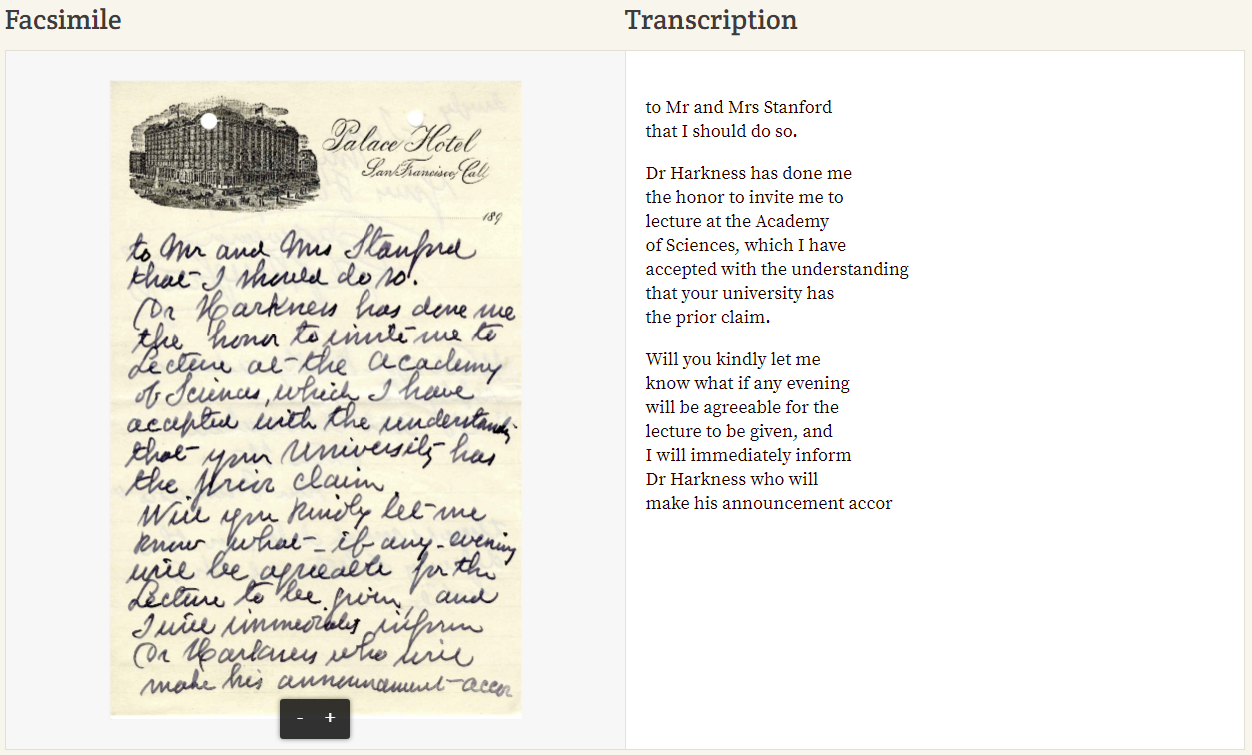 Facsimile
Transcription
Palace Hotel
San Francisco, Cal
189
to Mr and Mrs Stanford
that I should do so.
Dr Harkness has done me
the honor to invite me to
Lecture at the Academy
of Sciences, which I have
accepted with the understanding
that your University has
the prior claim.
Will you kindly let me
know what - if any - evening
will be agreeable for the
Lecture to be given, and
I will immediately inform
Dr Harkness who will
make his announcement accor
- +
to Mr and Mrs Stanford
that I should do so.
Dr Harkness has done me
the honor to invite me to
lecture at the Academy
of Sciences, which I have
accepted with the understanding
that your university has
the prior claim.
Will you kindly let me
know what if any evening
will be agreeable for the
lecture to be given, and
I will immediately inform
Dr Harkness who will
make his announcement accor